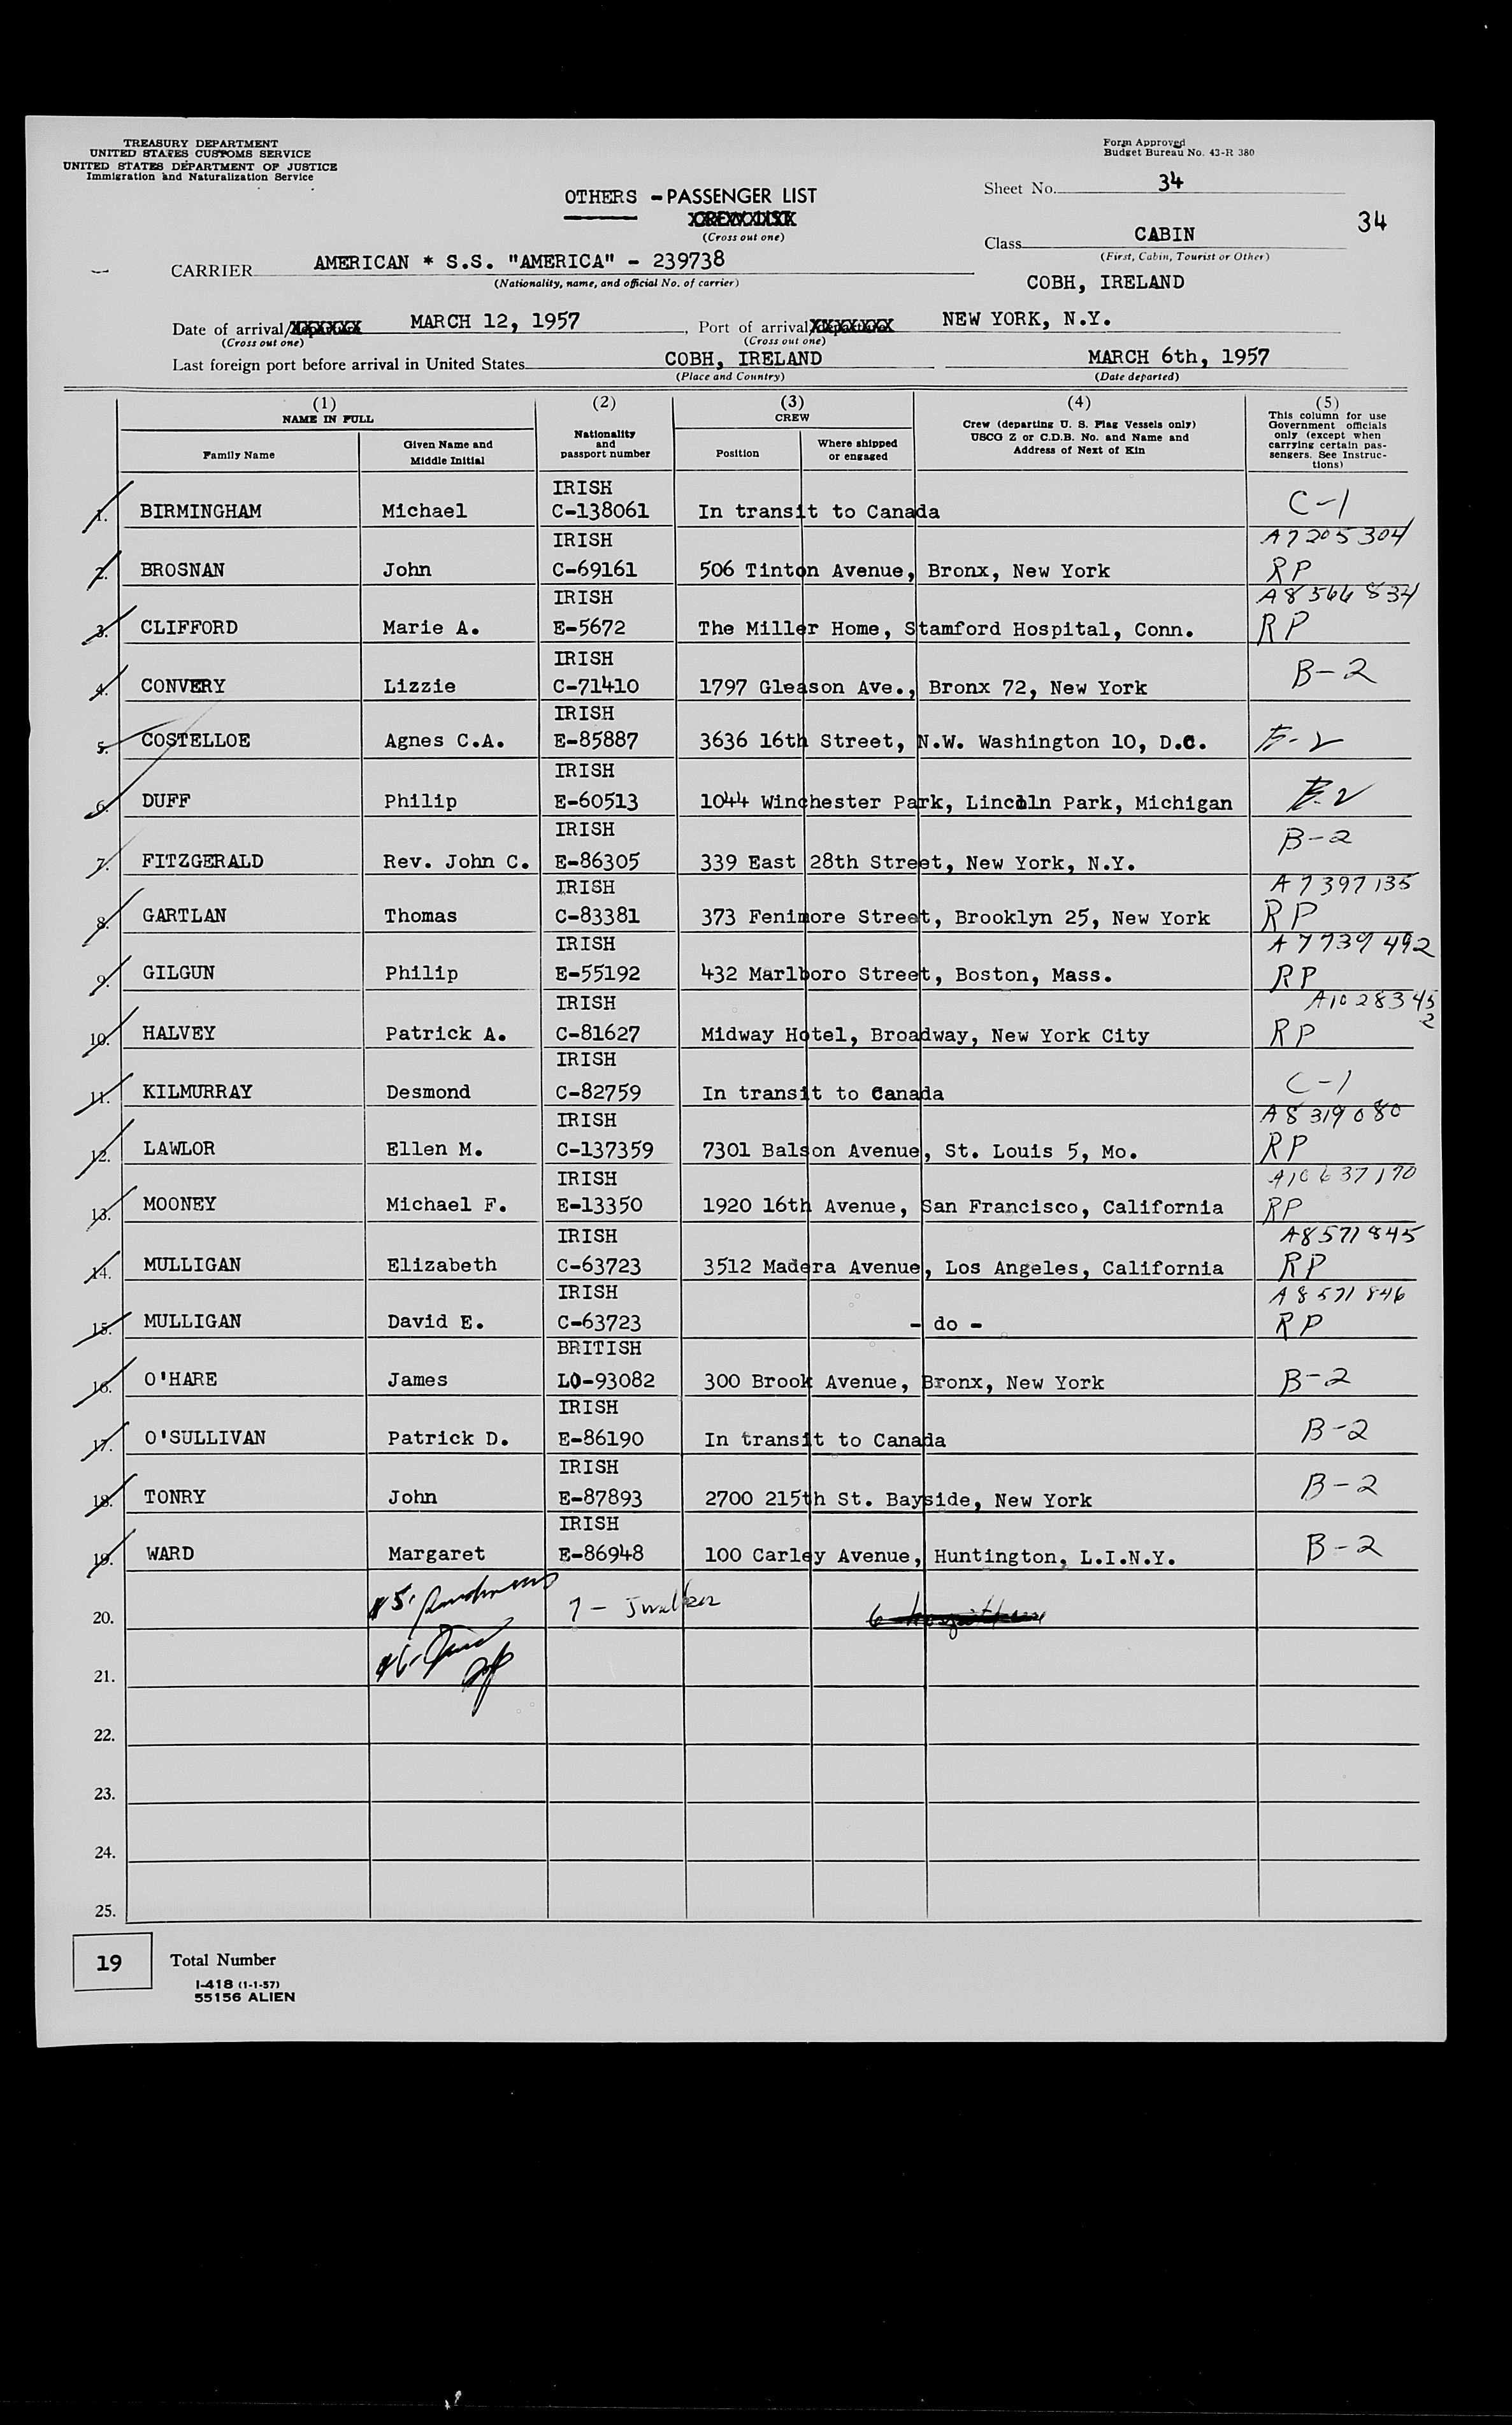 TREASURY DEPARTMENT
UNITED STATES CUSTOMS SERVICE
UNITED STATES DEPARTMENT OF JUSTICE
Immigration and Naturalization Service
Form Approved
Budget Bureau No. 43-R 380
Sheet No. 34
34
OTHERS - PASSENGER LIST
(Cross out one)
Class CABIN
(First, Cabin, Tourist or Other)
CARRIER AMERICAN * S.S. "AMERICA" - 239738
(Nationality, name, and official No. of carrier)
COBH, IRELAND
Date of arrival/ MARCH 12, 1957, Port of arrival/ NEW YORK, N.Y.
(Cross out one) (Cross out one)
Last foreign port before arrival in United States COBH, IRELAND MARCH 6th, 1957
(Place and Country) (Date departed)
(1) NAME IN FULL
Family Name
Given Name and Middle Initial
(2) Nationality and passport number
(3) CREW
Position
Where shipped or engaged
(4) Crew (departing U. S. Flag Vessels only) USCG Z or C.D.B. No. and Name and Address of Next of Kin
(5) This column for use Government officials only (except when carrying certain passengers. See Instructions)
IRISH
1. BIRMINGHAM Michael C-138061 In transit to Canada C-1
IRISH A7205304
2. BROSNAN John C-69161 506 Tinton Avenue, Bronx, New York RP
IRISH A8566834
3. CLIFFORD Marie A. E-5672 The Miller Home, Stamford Hospital, Conn. RP
IRISH
4. CONVERY Lizzie C-71410 1797 Gleason Ave., Bronx 72, New York B-2
IRISH
5. COSTELLOE Agnes C.A. E-85887 3636 16th Street, N.W. Washington 10, D.C. B-2
IRISH
6. DUFF Philip E-60513 1044 Winchester Park, Lincoln Park, Michigan B-2
IRISH
7. FITZGERALD Rev. John C. E-86305 339 East 28th Street, New York, N.Y. B-2
IRISH A7397135
8. GARTLAN Thomas C-83381 373 Fenimore Street, Brooklyn 25, New York RP
IRISH A7739492
9. GILGUN Philip E-55192 432 Marlboro Street, Boston, Mass. RP
IRISH A10283452
10. HALVEY Patrick A. C-81627 Midway Hotel, Broadway, New York City RP
IRISH
11. KILMURRAY Desmond C-82759 In transit to Canada C-1
IRISH A8319080
12. LAWLOR Ellen M. C-137359 7301 Balson Avenue, St. Louis 5, Mo. RP
IRISH A10637170
13. MOONEY Michael F. E-13350 1920 16th Avenue, San Francisco, California RP
IRISH A8571845
14. MULLIGAN Elizabeth C-63723 3512 Madera Avenue, Los Angeles, California RP
IRISH A8571846
15. MULLIGAN David E. C-63723 - do - RP
BRITISH
16. O'HARE James LO-93082 300 Brook Avenue, Bronx, New York B-2
IRISH
17. O'SULLIVAN Patrick D. E-86190 In transit to Canada B-2
IRISH
18. TONRY John E-87893 2700 215th St. Bayside, New York B-2
IRISH
19. WARD Margaret E-86948 100 Carley Avenue, Huntington, L.I.N.Y. B-2
20. 7 - J walker
21.
22.
23.
24.
25.
19 Total Number
I-418 (1-1-57)
55156 ALIEN